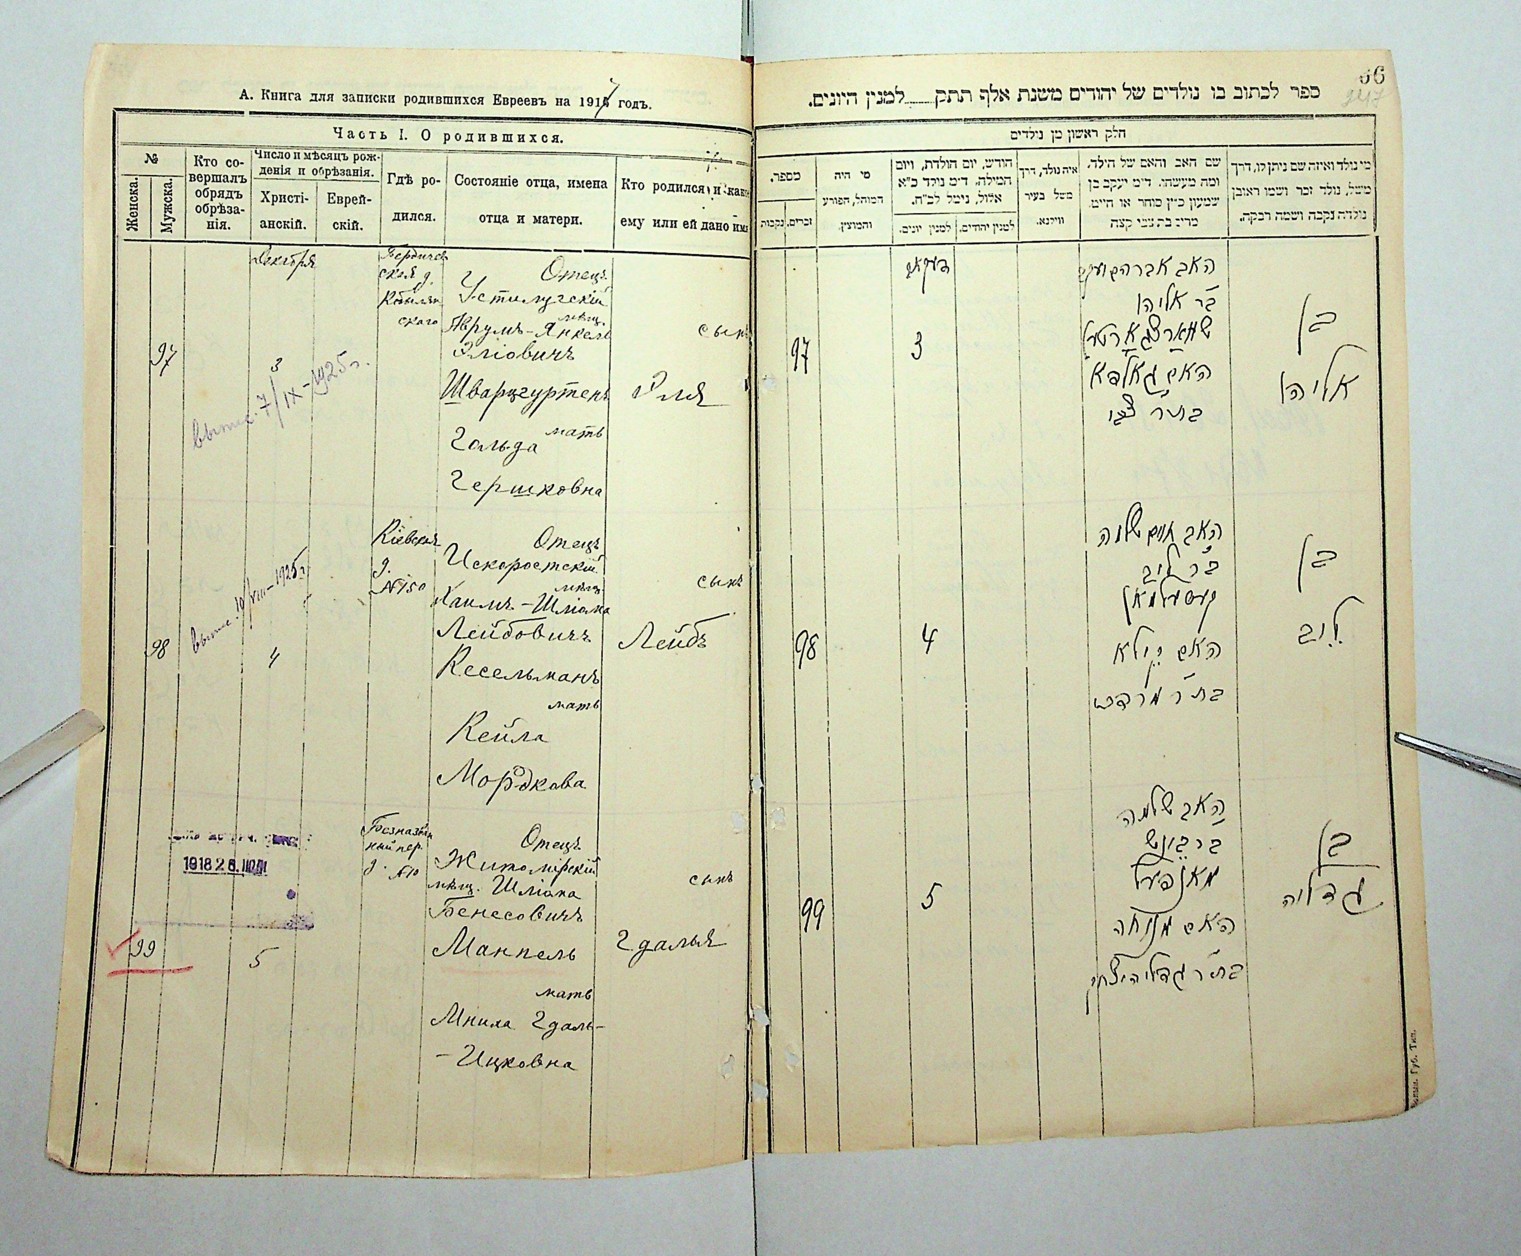 А. Книга для записки родившихся Евреевъ на 1917 годъ.
Часть I. О родившихся.
№
Женска.
Мужска.
Кто со-
вершалъ
обрядъ
обрѣза-
нія.
Число и мѣсяцъ рож-
денія и обрѣзанія.
Христі-
анскій.
Еврей-
скій.
Гдѣ ро-
дился.
Состояніе отца, имена
отца и матери.
Кто родился и како
ему или ей дано имя
97
3
Декабря
Отецъ
Устилугскій
мѣщ.
Аврумъ-Янкель
Эліовичъ
Шварцгуртенъ
мать
Гольда
Гершковна
сынъ
Эля
98
4
Кіевская
д.
№150
Отецъ
Искоростскій
мѣщ.
Хаимъ-Шліома
Лейбовичъ
Кесельманъ
мать
Кейла
Мордкова
сынъ
Лейбъ
1918 2 6.
99
5
д. №10
Отецъ
Житомірскій
мѣщ. Шліома
Бенесовичъ
Манпель
мать
Гдаль-
-Ицковна
сынъ
Гдалья
66
247
ספר לכתוב בו נולדים של יהודים משנת אלף תתק למנין היונים.
חלק ראשון מן נולדים
מספר.
זכרים.
נקבות
מי היה
המוהל, הפורע
והמוצץ.
חודש, יום הולדת, ויום
המילה. ד״מ נולד כ״א
אלול, נימל לכ״ח.
למנין יונים.
למנין יהודים.
איה נולד, דרך
משל בעיר
ווילנא.
שם האב והאם של הילד,
ומה מעשהו. ד״מ יעקב בן
שמעון כ״ץ סוחר או חייט.
מרים בת צבי קצה
מי נולד ואיזה שם ניתן לו, דרך
משל, נולד זכר ושמו ראובן
נולדה נקבה ושמה רבקה.
97
3
בר אליהו
שווארצגארטען
האם גאלדא
בת״ר צבי
בן
אליהו
98
4
האב חיים שלמה
בר ליב
קעסעלמאן
האם קיילא
בת״ר מרדכי
בן
ליב
99
5
האב שלמה
האם מנוחה
בן
גדליה